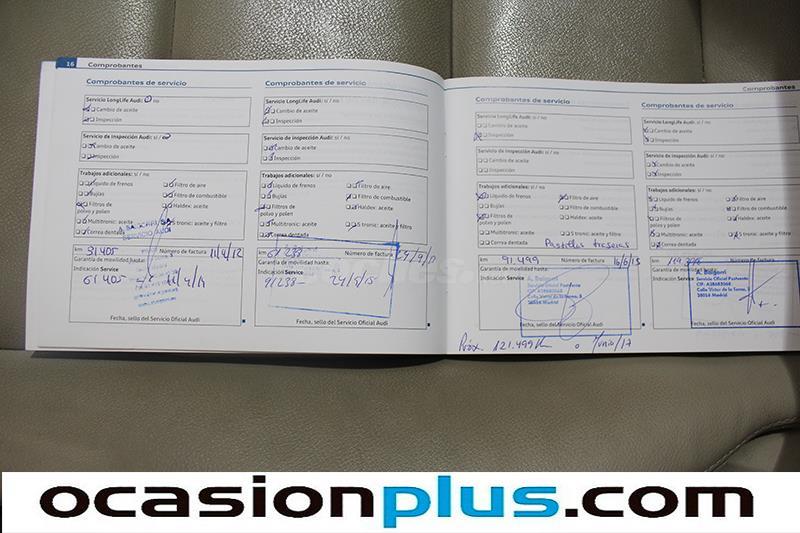 16 Comprobantes
Comprobantes de servicio
Servicio LongLife Audi: sí / no
Cambio de aceite
Inspección
Servicio de inspección Audi: sí / no
Cambio de aceite
Inspección
Trabajos adicionales: sí / no
Líquido de frenos Filtro de aire
Bujías Filtro de combustible
Filtros de polvo y polen Haldex: aceite
Multitronic: aceite S tronic: aceite y filtro
Correa dentada
km 31.405 Número de factura 11/4/12
Garantía de movilidad hasta:
Indicación Service
61.405
Fecha, sello del Servicio Oficial Audi
Comprobantes de servicio
Servicio LongLife Audi: sí / no
Cambio de aceite
Inspección
Servicio de inspección Audi: sí / no
Cambio de aceite
Inspección
Trabajos adicionales: sí / no
Líquido de frenos Filtro de aire
Bujías Filtro de combustible
Filtros de polvo y polen Haldex: aceite
Multitronic: aceite S tronic: aceite y filtro
Correa dentada
km 61.238 Número de factura
Garantía de movilidad hasta:
Indicación Service
91238 - 24/8/15
Fecha, sello del Servicio Oficial Audi
Comprobantes
Comprobantes de servicio
Servicio LongLife Audi: sí / no
Cambio de aceite
Inspección
Servicio de inspección Audi: sí / no
Cambio de aceite
Inspección
Trabajos adicionales: sí / no
Líquido de frenos Filtro de aire
Bujías Filtro de combustible
Filtros de polvo y polen Haldex: aceite
Multitronic: aceite S tronic: aceite y filtro
Correa dentada Pastillas traseras
km 91.499 Número de factura 16/6/15
Garantía de movilidad hasta:
Indicación Service
Servicio Oficial Postventa
28014 Madrid
Fecha, sello del Servicio Oficial Audi
Próx 121.499 km o Junio/17
Comprobantes de servicio
Servicio LongLife Audi: sí / no
Cambio de aceite
Inspección
Servicio de inspección Audi: sí / no
Cambio de aceite
Inspección
Trabajos adicionales: sí / no
Líquido de frenos Filtro de aire
Bujías Filtro de combustible
Filtros de polvo y polen Haldex: aceite
Multitronic: aceite S tronic: aceite y filtro
Correa dentada
km Número de factura
Garantía de movilidad hasta:
Indicación Service
Servicio Oficial Postventa
28014 Madrid
Fecha, sello del Servicio Oficial Audi
ocasionplus.com